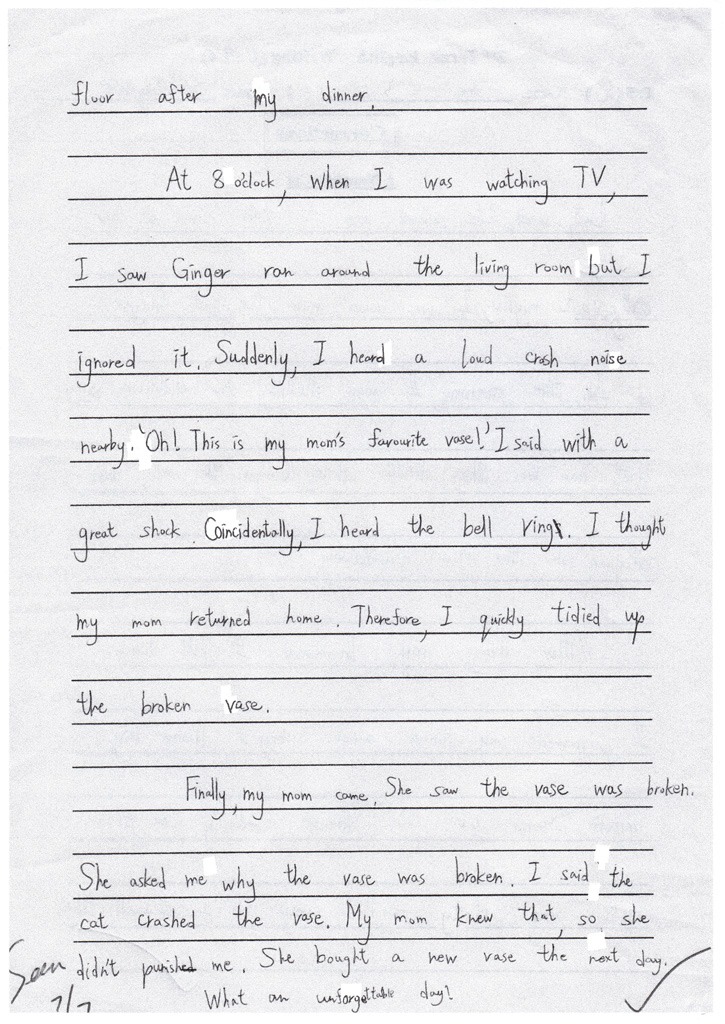 floor after my dinner.
At 8 o'clock, When I was watching TV,
I saw Ginger ran around the living room but I
ignored it. Suddenly, I heard a loud crash noise
nearby. 'Oh! This is my mom's favourite vase!' I said with a
great shock. Coincidentally, I heard the bell ring. I thought
my mom returned home. Therefore, I quickly tidied up
the broken vase.
Finally, my mom came. She saw the vase was broken.
She asked me why the vase was broken. I said the
cat crashed the vase. My mom knew that, so she
didn't punished me. She bought a new vase the next day.
What an unforgettable day!
Seen
7/7